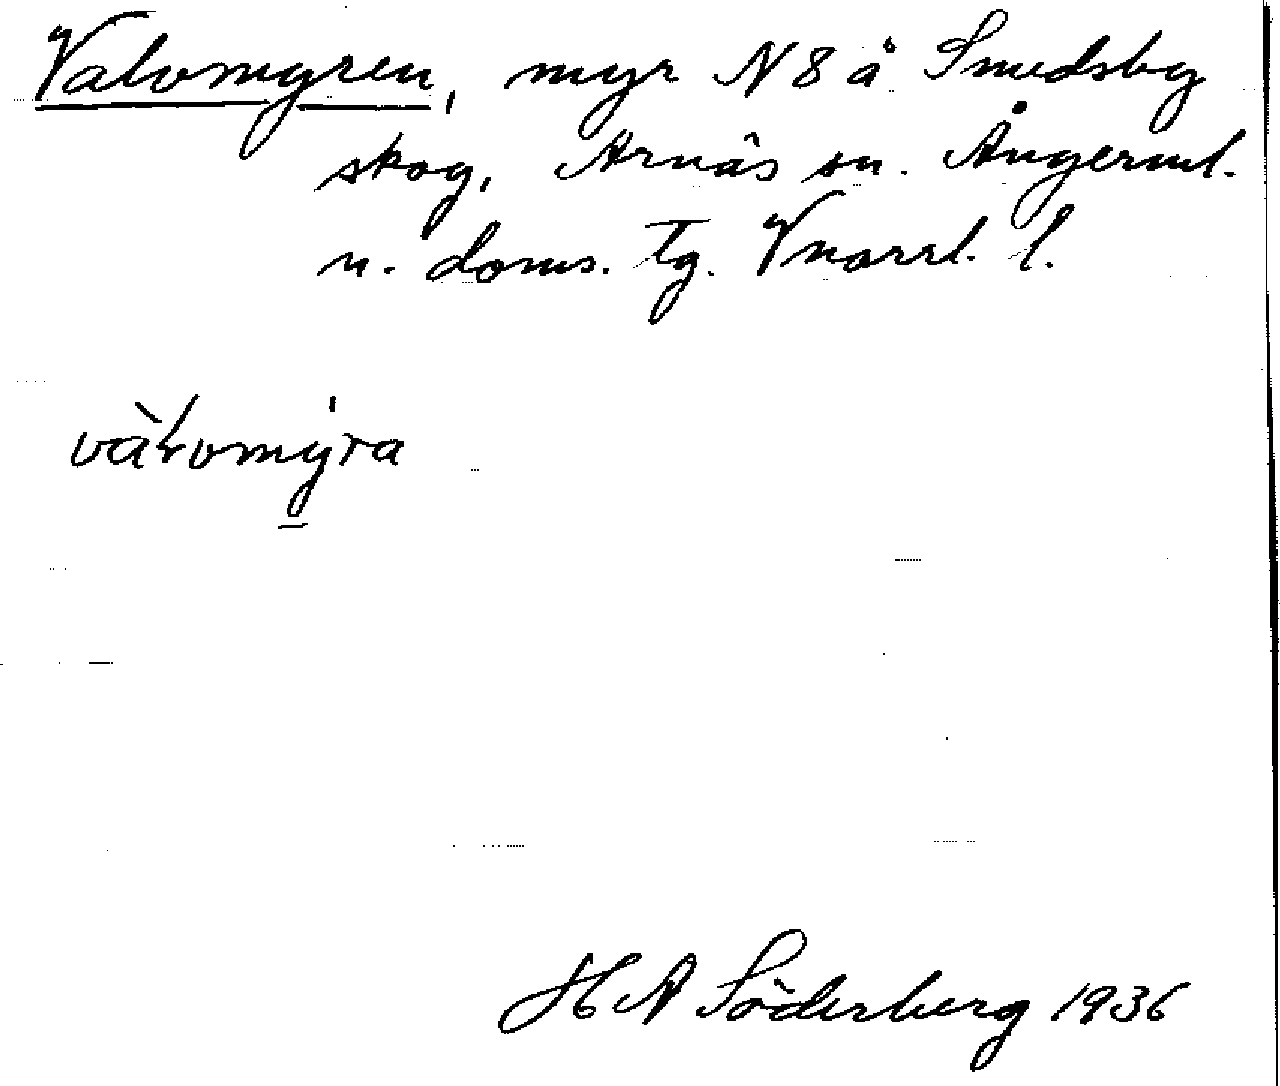 Valomyren, myr N 8 å Smedsby
skog, Arnäs sn. Ångerml.
n. doms. tg. Vnorrl. l.
vàłomýra
H A Söderberg 1936